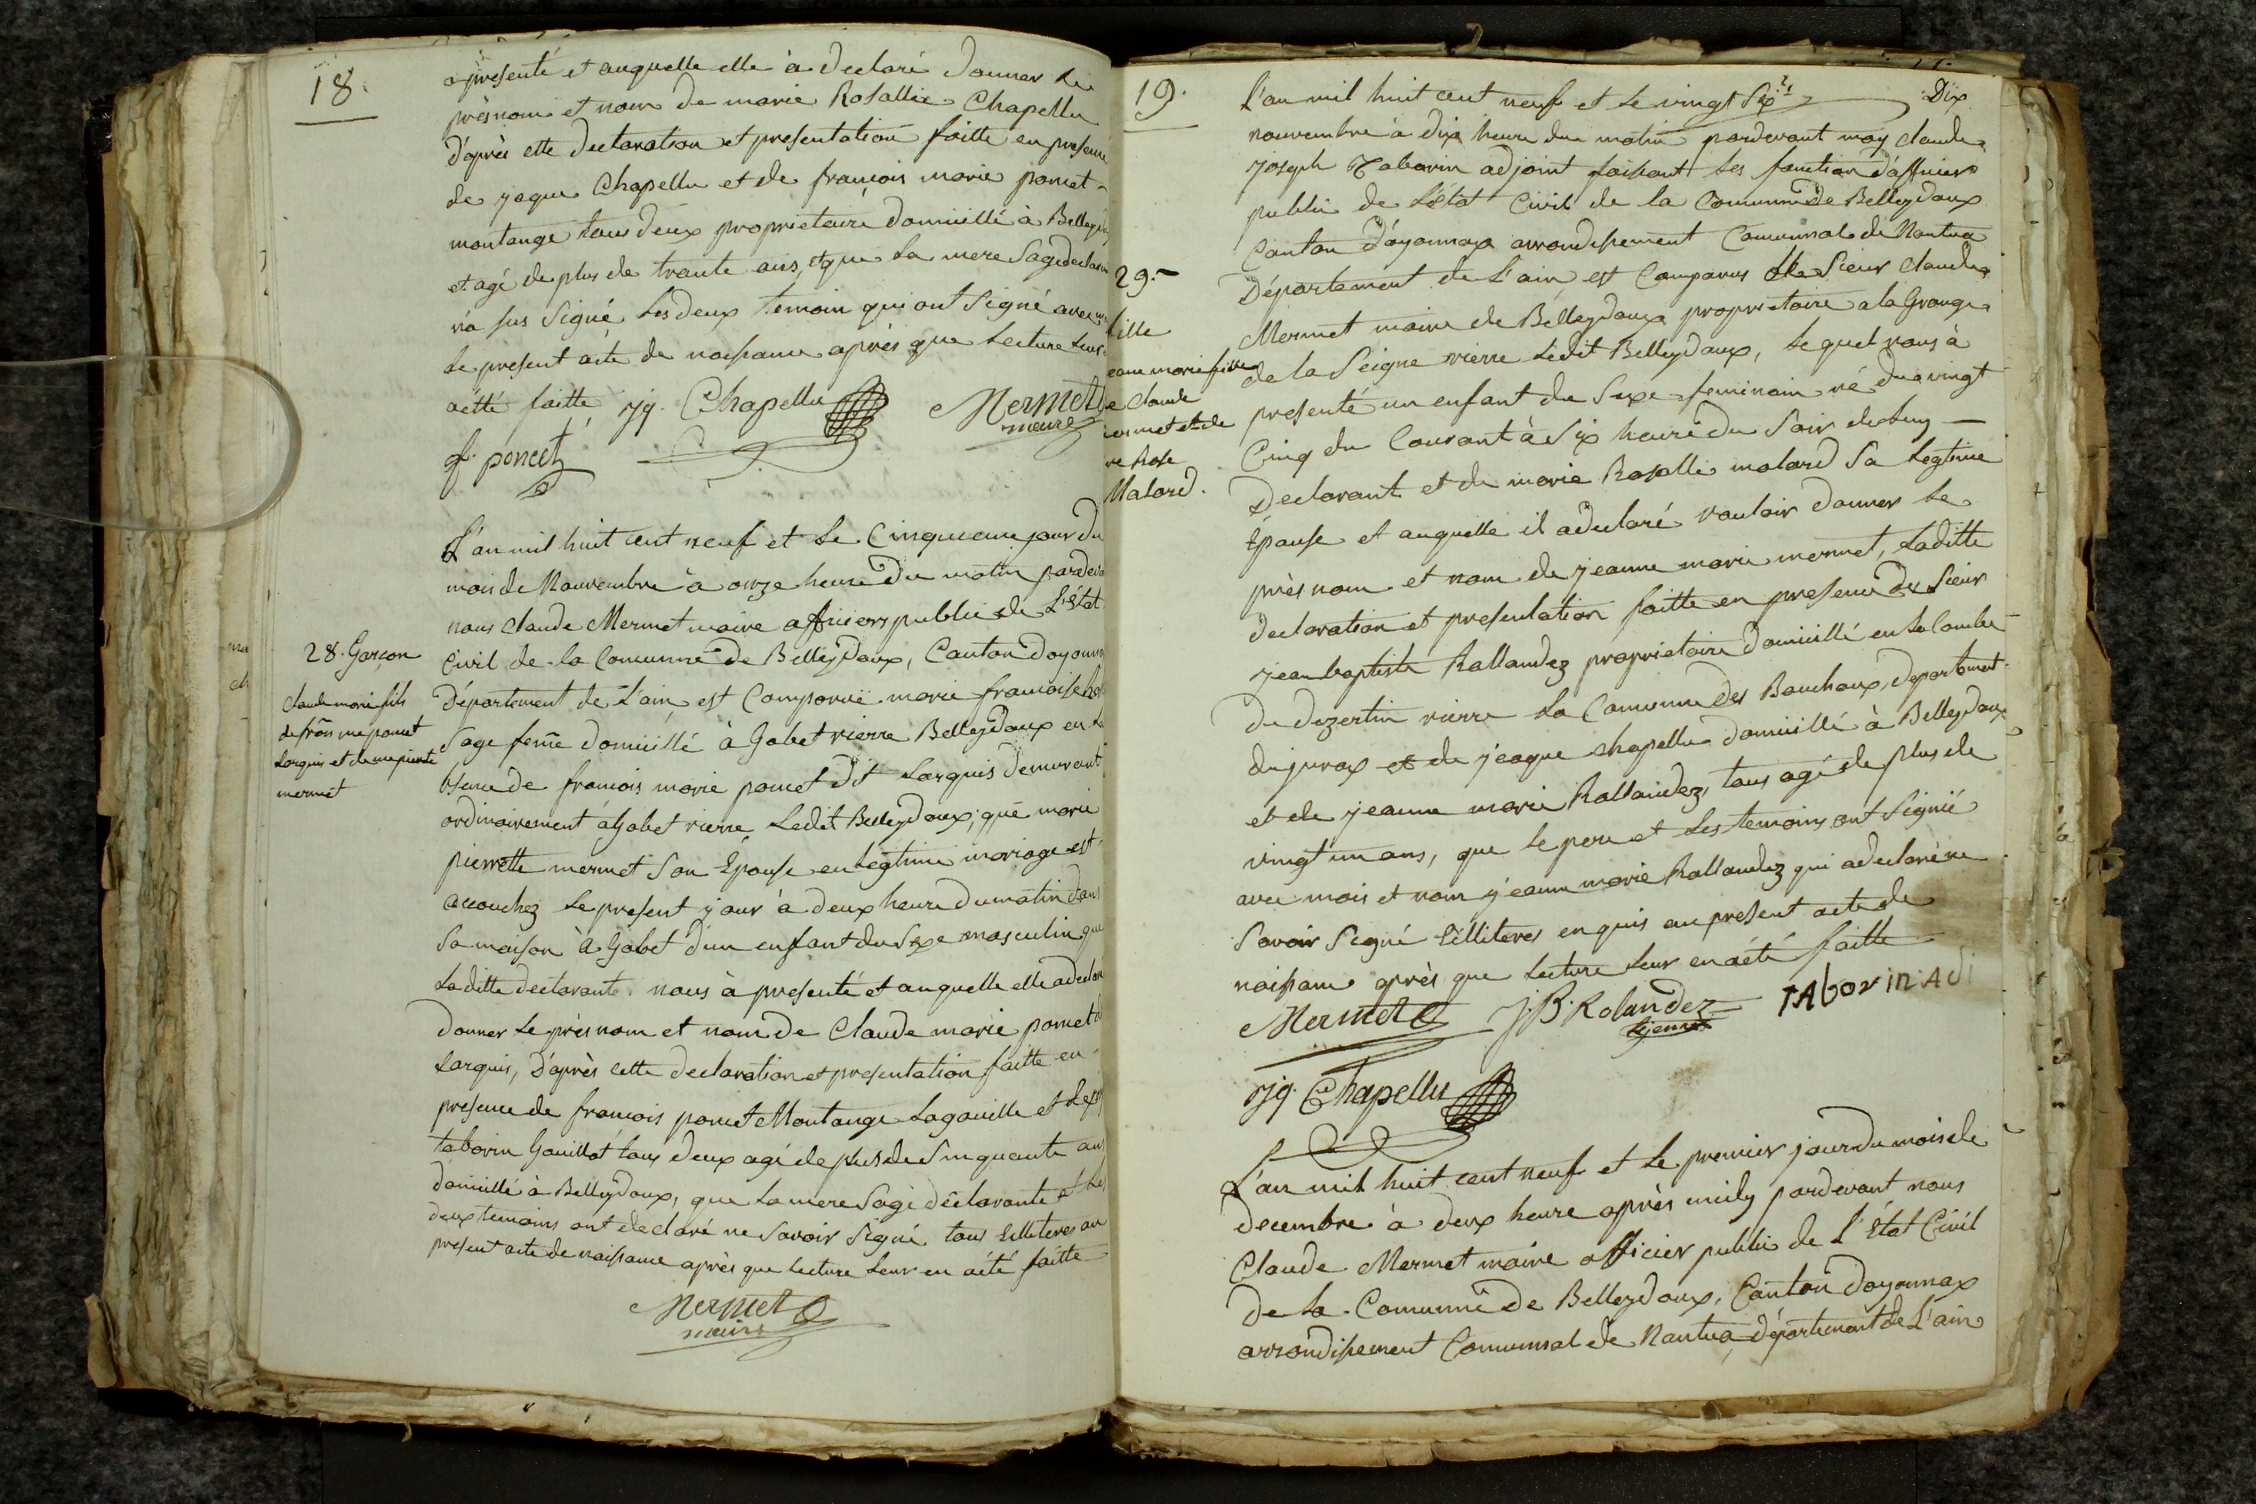 18.
a presenté et auquelle elle à declaré donner le
près nom et nom de marie Rosallie Chapellu
d'après cette declaration et presentation faitte en presence
de jaque Chapellu et de françois marie poncet
montange tous deux proprietaire domicillé à Belleydoux
et agé de plus de trante ans, et que la mere Sage declarante
n'a sus Signé les deux temoin qui ont Signé avec
le present acte de naissance après que lecture leur
aété faitte jq. Chapellu Mermet
maire
f. poncet
L'an mil huit cent neuf et le Cinquieme jour du
mois de Nouvembre à onze heure du matin pardevant
nous claude Mermet maire officiers public de L'état
Civil de la Comunne de Belleydoux, Canton doyonnax
Département de L'ain est Comparuë marie francoise
Sage feme domicillé à Gobet rierre Belleydoux en la
bsence de francois marie poncet dit Larquis demurant
ordinairement à Gobet rierre Ledit Belleydoux, que marie
pierrette mermet Son Épouse en legtime mariage est
accouchez le present jour à deux heure du matin dans
Sa maison à Gobet d'un enfant du Sexe masculin que
Laditte declarante nous à presenté et auquelle elle adeclaré
donner le près nom et nom de Claude marie poncet
Larquis, d'après cette declaration et presentation faitte en
presence de francois poncet Montange Lagouille et
taborin Gouillot tous deux agé de plus de Sinquante ans
domicillé à Belleydoux, que la mere Sage déclarante et les
deux temoins ont declaré ne Savoir Signé tous Lilliteres au
present acte de naissance après que lecture leur en aété faitte
Mermet
maire
28. Garcon
claude marie fils
de frois me poncet
Larquis et de me pierette
mermet
19.
L'an mil huit cent neuf et le vingt Six Dix
nouvembre à dix heure du matin pardevant moy claude
joseph Taborin adjoint faisant les fonction d'afficier
public de L'état Civil de la Comunne de Belleydoux
Canton d'oyonnax arrondissement Comunnal de Nantua
Département de L'ain est Comparus le Sieur claude
Mermet maire de Belleydoux proprietaire a la Grange
de la Seigne rierre Ledit Belleydoux, lequel nous à
presenté un enfant du Sexe feminain né du vingt
Cinq du Courant à Six heure du Soir de luy
Declarant et de marie Rosallie malard Sa legtime
Épouse et auquelle il adeclaré vouloir donner le
près nom et nom de jeanne marie mermet, Laditte
declaration et presentation faitte en presence du Sieur
jean baptiste Rallandez proprietaire domicillé en la Combe
du dezertin rierre la Comunne des Bouchoux, departement
du jurax et de jeaque chapellu domicillé à Belleydoux
et de jeanne marie Rallandez, tous agé de plus de
vingt un ans, que le pere et les temoins ont Signié
avec mois et nom jeanne marie Rallandez qui adeclaré ne
Savoir Signé Lilliteres enquis au present acte de
naissance après que lecture leur en aété faitte
Mermet JB. Rolandez tAborin Adi
lejeune
jq. Chapellu
L'an mil huit cent neuf et le premier jour du mois de
decembre à deux heure après midy pardevant nous
Claude Mermet maire officier public de L'État Civil
de la Comunne de Belleydoux, Canton doyonnax
arrondissement Comunnal de Nantua, département de L'ain
29.
fille
eanne marie fille
e claude
ermet et de
rie Rose
Malard.